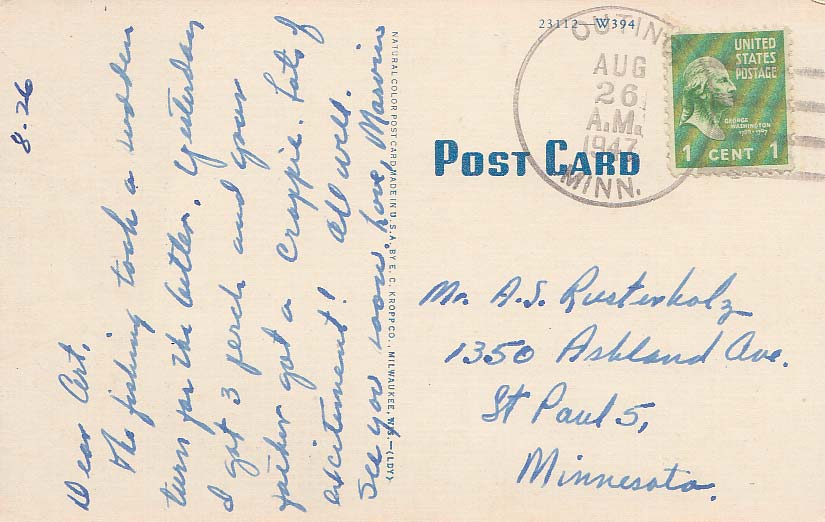 8-26
Dear Art,
The fishing took a sudden
turn for the better. Yesterday
I got 3 perch and your
father got a crappie. Lots of
excitement! All well.
See you soon, love, Marvin
NATURAL COLOR POST CARD MADE IN U.S.A. BY E. C. KROPP CO., MILWAUKEE, WIS.—(LDY)
23112—W394
OUTING
AUG
26
A.M.
1947
MINN.
UNITED
STATES
POSTAGE
GEORGE
WASHINGTON
1789-1797
1 CENT 1
POST CARD
Mr. A.S. Rustenholz
1350 Ashland Ave.
St Paul 5,
Minnesota.